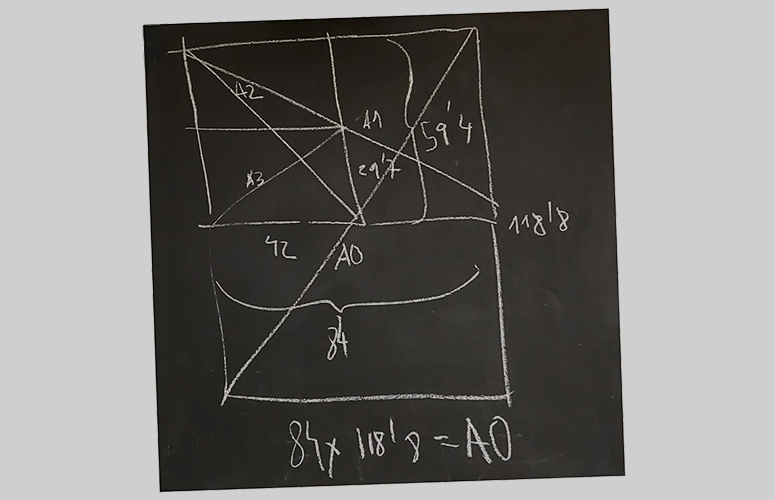 A2
A1
59'4
29'7
A3
118'8
42
A0
84
84x 118'8 = A0